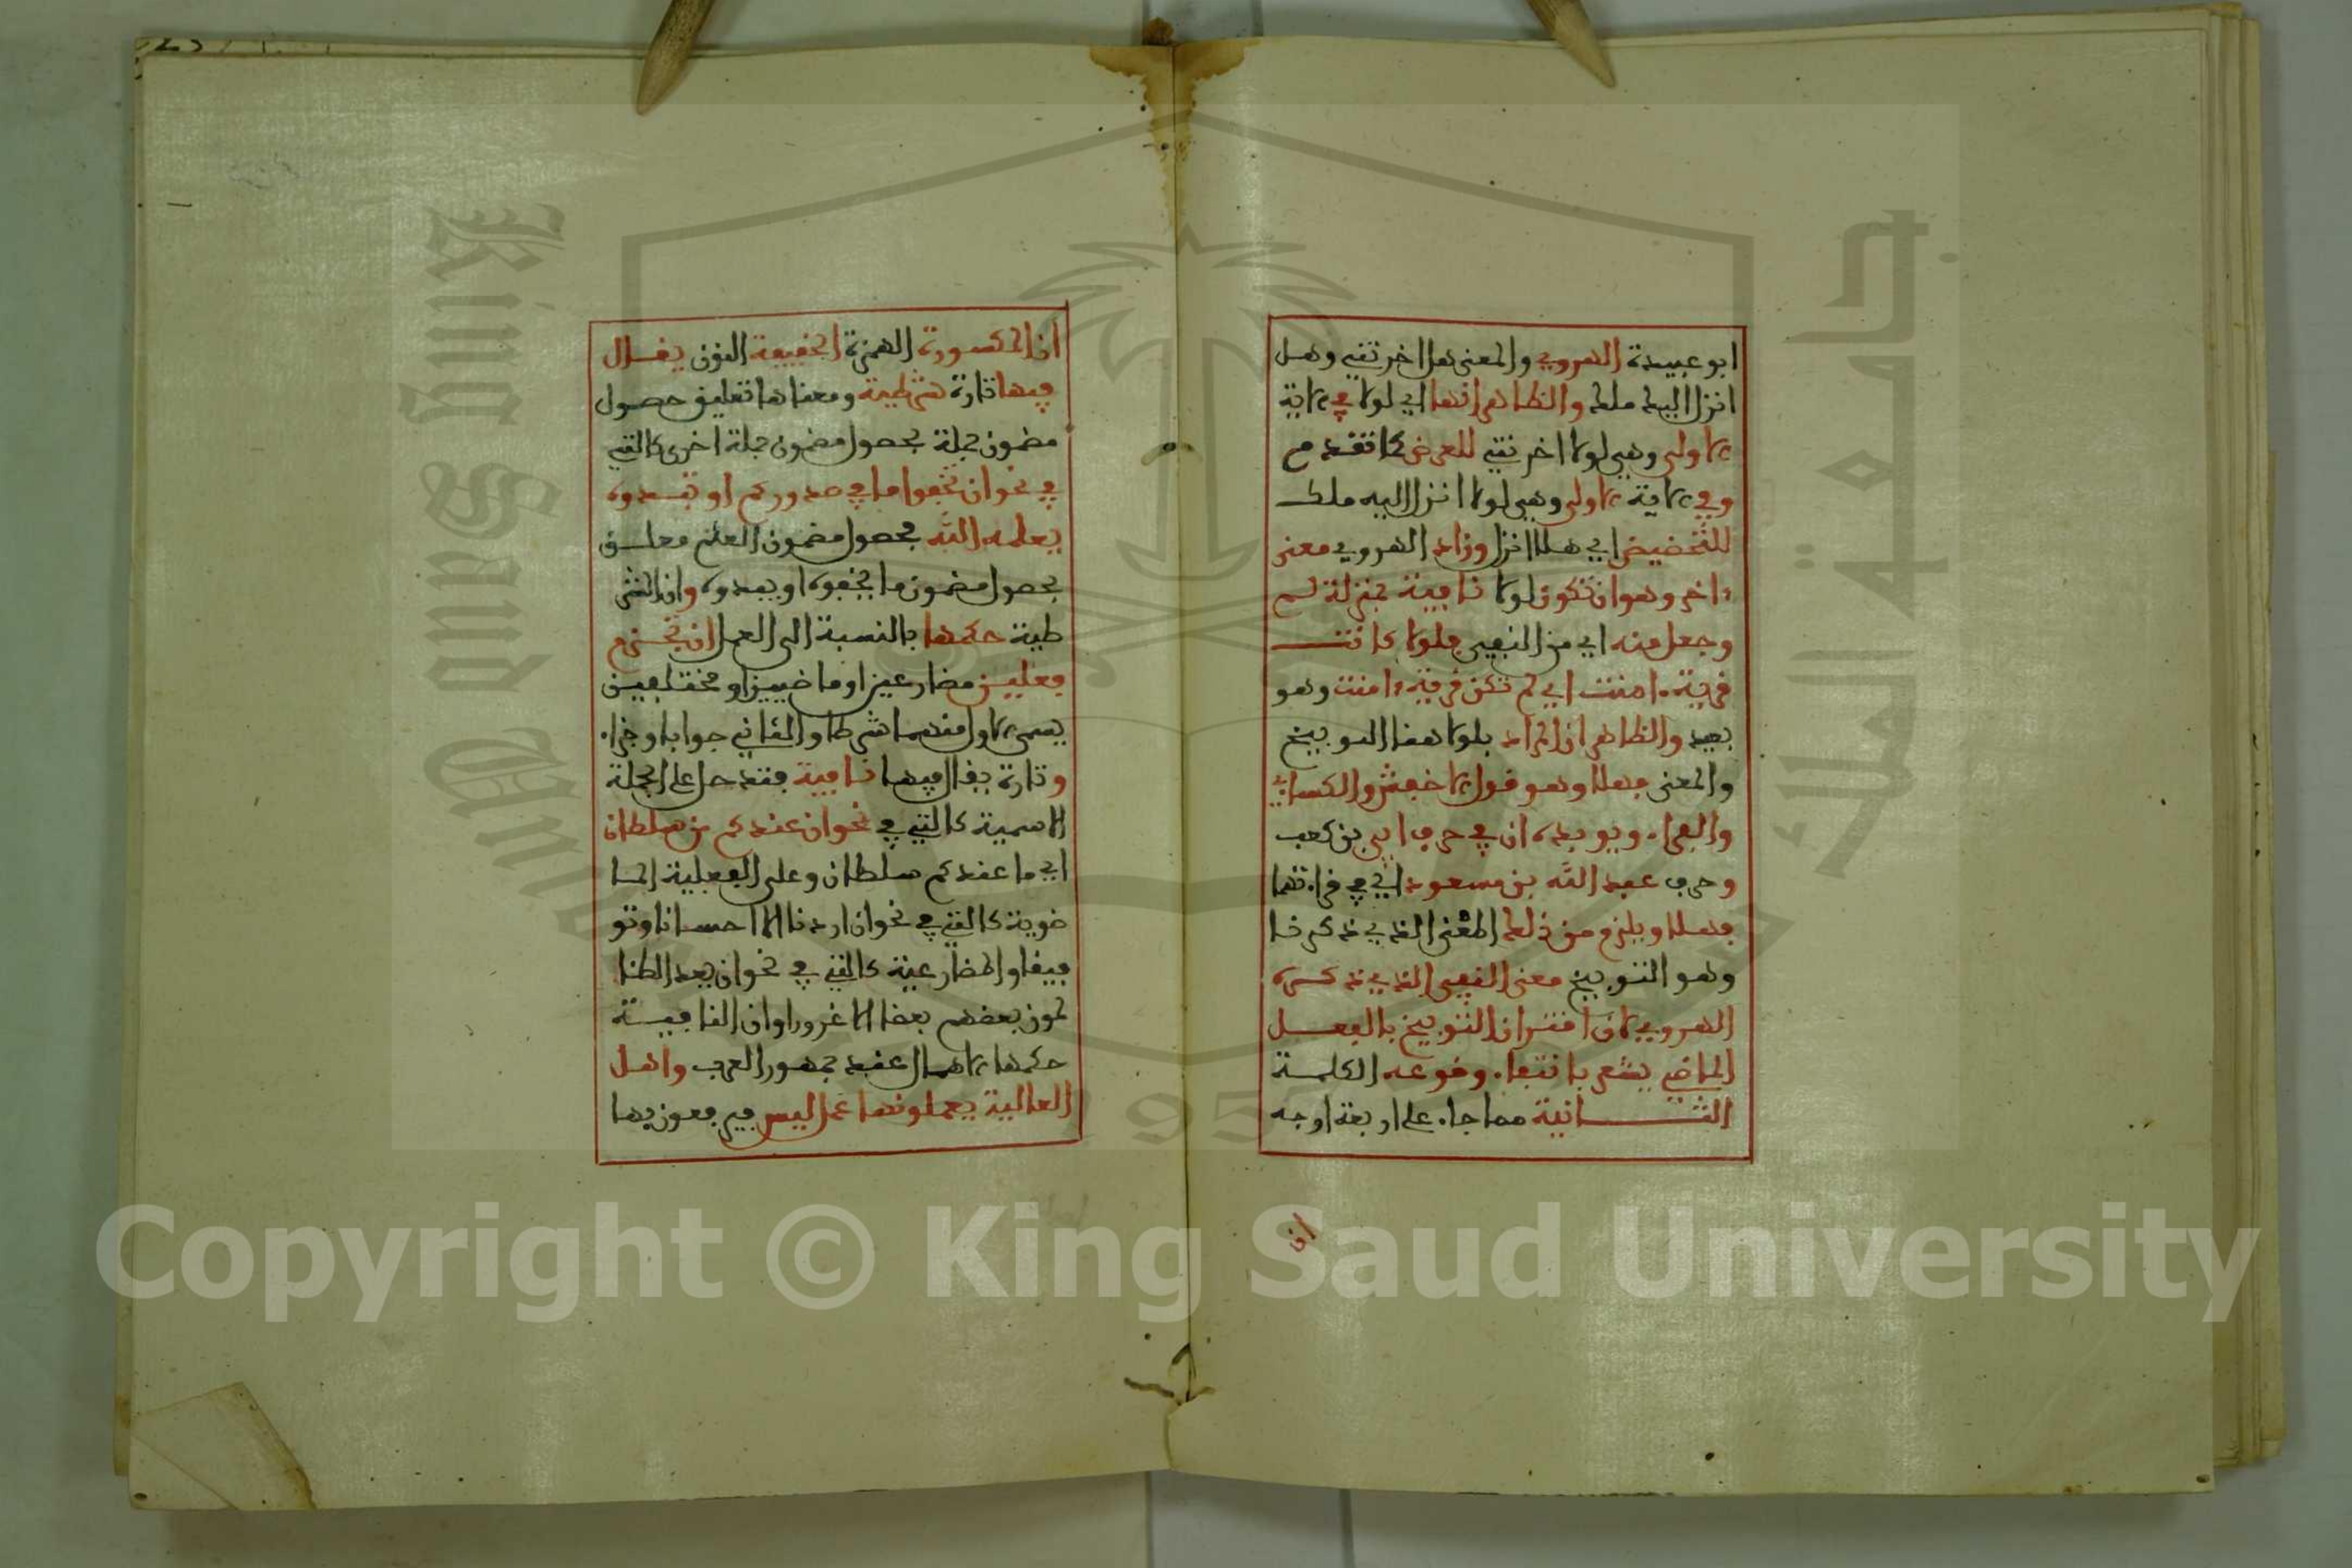 ابو عبيدة الهروي والمعنى هل اخرتني وهل
انزل اليه ملك والظاهر انها اي لولا في الاية
الاولى وهي لولا اخرتني للعرض كما تقدم
وفي الاية الاولى وهي لولا انزل اليه ملك
للتخضيض اي هلا انزل وزاد الهروي معنى
ءاخر وهو ان تكون لولا نافية بمنزلة لم
وجعل منه اي من النفي فلولا كانت
قرية ءامنت اي لم تكن قرية ءامنت وهو
بعيد والظاهر ان المراد بلولا هنا التوبيخ
والمعنى فهلا وهو قول الاخفش والكسائي
والفراء ويويده ان في حرف ابي بن كعب
وحرف عبد الله بن مسعود اي في قراءتهما
فهلا ويلزم من ذلك المعنى الذي ذكرنا
وهو التوبيخ معنى النفي الذي ذكره
الهروي لان اقتران التوبيخ بالفعل
الماضي يشعر بانتفاء وقوعه الكلمة
الثانية مما جاء على اربعة اوجه
ان
ان المكسورة الهمزة الخفيفة النون يقال
فيها تارة شرطية ومعناها تعليق حصول
مضمون جملة بحصول مضمون جملة اخرى كالتي
في نحو ان تخفوا ما في صدوركم او تبدوه
يعلمه الله فحصول مضمون العلم معلق
بحصول مضمون ما يخفوه او يبدوه وان الشر
طية حكمها بالنسبة الى العمل ان تجزم
فعلين مضارعين او ماضيين او مختلفين
يسمى الاول منهما شرطا والثاني جوابا وجزاء
وتارة يقال فيها نافية فتدخل على الجملة
الاسمية كالتي في نحو ان عندكم من سلطان
اي ما عندكم سلطان وعلى الفعلية الما
ضوية كالتي في نحو ان اردنا الا احسانا وتو
فيقا والمضارعية كالتي في نحو ان يعد الظا
لمون بعضهم بعضا الا غرورا وان النافية
حكمها الاهمال عند جمهور العرب واهل
العالية يعملونها عمل ليس فيرفعون بها
Copyright © King Saud University